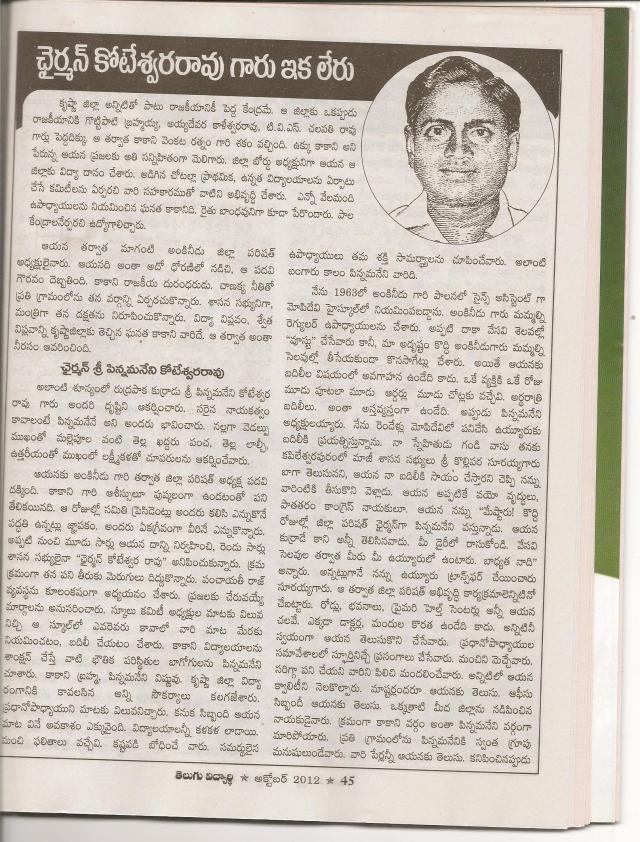 ఛైర్మన్ కోటేశ్వరరావు గారు ఇక లేరు
కృష్ణా జిల్లా అన్నిటితో పాటు రాజకీయానికీ పెద్ద కేంద్రమే. ఆ జిల్లాకు ఒకప్పుడు
రాజకీయానికి గొట్టిపాటి బ్రహ్మయ్య, అయ్యదేవర కాళేశ్వరరావు, టి.వి.ఎస్. చలపతి రావు
గార్లు పెద్దదిక్కు. ఆ తర్వాత కాకాని వెంకట రత్నం గారి శకం వచ్చింది. ఉక్కు కాకాని అని
పేరున్న ఆయన ప్రజలకు అతి సన్నిహితంగా మెలిగారు. జిల్లా బోర్డు అధ్యక్షునిగా ఆయన ఆ
జిల్లాకు విద్యా దానం చేశారు. అడిగిన చోటల్లా ప్రాథమిక, ఉన్నత విద్యాలయాలను ఏర్పాటు
చేసే కమిటీలను ఏర్పరచి వారి సహకారముతో వాటిని అభివృద్ధి చేశారు. ఎన్నో వేలమంది
ఉపాధ్యాయులను నియమించిన ఘనత కాకానిది. రైతు బాంధవునిగా కూడా పేరొందారు. పాల
కేంద్రాలనేర్పరచి ఉద్యోగాలిచ్చారు.
ఆయన తర్వాత మాగంటి అంకినీడు జిల్లా పరిషత్
అధ్యక్షులైనారు. ఆయనది అంతా అదో ధోరణిలో నడిచి, ఆ పదవి
గౌరవం దెబ్బతింది. కాకాని రాజకీయ దురంధరుడు. చాణక్య నీతితో
ప్రతి గ్రామంలోను తన వర్గాన్ని ఏర్పరచుకొన్నారు. శాసన సభ్యునిగా,
మంత్రిగా తన దక్షతను నిరూపించుకొన్నారు. విద్యా విప్లవం, శ్వేత
విప్లవాన్ని కృష్ణాజిల్లాకు తెచ్చిన ఘనత కాకాని వారిదే. ఆ తర్వాత అంతా
నీరసం ఆవరించింది.
ఛైర్మన్ శ్రీ పిన్నమనేని కోటేశ్వరరావు
అలాంటి శూన్యంలో రుద్రపాక కుర్రాడు శ్రీ పిన్నమనేని కోటేశ్వర
రావు గారు అందరి దృష్టిని ఆకర్షించారు. సరైన నాయకత్వం
కావాలంటే పిన్నమనేనే అని అందరు భావించారు. నల్లగా వెడల్పు
ముఖంతో మల్లెపూల వంటి తెల్ల ఖద్దరు పంచ, తెల్ల లాల్చీ,
ఉత్తరీయంతో ముఖంలో లక్ష్మీకళతో చూపరులను ఆకర్షించేవారు.
ఆయనకు అంకినీడు గారి తర్వాత జిల్లా పరిషత్ అధ్యక్ష పదవి
దక్కింది. కాకాని గారి ఆశీస్సులూ పుష్కలంగా ఉండటంతో పని
తేలికయినది. ఆ రోజుల్లో సమితి ప్రెసిడెంట్లు అందరు కలిసి ఎన్నుకొనే
పద్ధతి ఉన్నట్లు జ్ఞాపకం. అందరు ఏకగ్రీవంగా వీరినే ఎన్నుకొన్నారు.
అప్పటి నుంచి మూడు సార్లు ఆయన దాన్ని నిర్వహించి, రెండు సార్లు
శాసన సభ్యులైనా "ఛైర్మన్ కోటేశ్వర రావు" అనిపించుకున్నారు. క్రమ
క్రమంగా తన పని తీరుకు మెరుగులు దిద్దుకొన్నారు. పంచాయతీ రాజ్
వ్యవస్థను కూలంకషంగా అధ్యయనం చేశారు. ప్రజలకు చేరువయ్యే
మార్గాలను అనుసరించారు. స్కూలు కమిటీ అధ్యక్షుల మాటకు విలువ
నిచ్చి ఆ స్కూల్‌లో ఎవరెవరు కావాలో వారి మాట మేరకు
నియమించటం, బదిలీ చేయటం చేశారు. కాకాని విద్యాలయాలను
శాంక్షన్ చేస్తే వాటి భౌతిక పరిస్థితుల బాగోగులను పిన్నమనేని
చూశారు. కాకాని బ్రహ్మ, పిన్నమనేని విష్ణువు. కృష్ణా జిల్లా విద్యా
రంగానికి కావలసిన అన్ని సౌకర్యాలు కలగజేశారు.
ప్రధానోపాధ్యాయుని మాటకు విలువనిచ్చారు. కనుక సిబ్బంది ఆయన
మాట వినే అవకాశం ఎక్కువైంది. విద్యాలయాలన్నీ కళకళ లాడాయి.
మంచి ఫలితాలు వచ్చేవి. కష్టపడి బోధించే వారు. సమర్థులైన
ఉపాధ్యాయులు తమ శక్తి సామర్థ్యాలను చూపించేవారు. అలాంటి
బంగారు కాలం పిన్నమనేని వారిది.
నేను 1963లో అంకినీడు గారి పాలనలో సైన్స్ అసిస్టెంట్ గా
మోపిదేవి హైస్కూల్‌లో నియమింపబడ్డాను. అంకినీడు గారు మమ్మల్ని
రెగ్యులర్ ఉపాధ్యాయులను చేశారు. అప్పటి దాకా వేసవి శెలవల్లో
"వూస్టు" చేసేవారు కానీ, మా అదృష్టం కొద్దీ అంకినీడుగారు మమ్మల్ని
సెలవుల్లో తీసేయకుండా కొనసాగేట్లు చేశారు. అయితే ఆయనకు
బదిలీల విషయంలో అవగాహన ఉండేది కాదు. ఒకే వ్యక్తికి ఒకే రోజు
మూడు పూటలా మూడు ఆర్డర్లు మూడు చోట్లకు వచ్చేవి. అర్ధరాత్రి
బదిలీలు. అంతా అస్తవ్యస్తంగా ఉండేది. అప్పుడు పిన్నమనేని
అధ్యక్షులయ్యారు. నేను రెండేళ్లు మోపిదేవిలో పనిచేసి ఉయ్యూరుకు
బదిలీకి ప్రయత్నిస్తున్నాను. నా స్నేహితుడు గండి వాసు తనకు
కపిలేశ్వరపురంలో మాజీ శాసన సభ్యులు శ్రీ కొల్లిపర సూరయ్యగారు
బాగా తెలుసునని, ఆయన నా బదిలీకి సాయం చేస్తారని చెప్పి నన్ను
వారింటికి తీసుకొని వెళ్లాడు. ఆయన అప్పటికే వయో వృద్ధులు,
పాతతరం కాంగ్రెస్ నాయకులూ. ఆయన నన్ను "మేష్టారు! కొద్ది
రోజుల్లో జిల్లా పరిషత్ ఛైర్మన్‌గా పిన్నమనేని వస్తున్నాడు. ఆయన
కుర్రాడే కాని అన్నీ తెలిసినవాడు. మీ డైరీలో రాసుకోండి. వేసవి
సెలవుల తర్వాత మీరు మీ ఉయ్యూరులో ఉంటారు. బాధ్యత నాది"
అన్నారు. అన్నట్లుగానే నన్ను ఉయ్యూరు ట్రాన్స్‌ఫర్ చేయించారు
సూరయ్యగారు. ఆ తర్వాత జిల్లా పరిషత్ అభివృద్ధి కార్యక్రమాలెన్నిటినో
చేబట్టారు. రోడ్లు, భవనాలు, ప్రైమరి హెల్త్ సెంటర్లు అన్నీ ఆయన
చలవే. ఎక్కడా డాక్టర్ల, మందుల కొరత ఉండేది కాదు. అన్నిటినీ
స్వయంగా ఆయన తెలుసుకొని చేసేవారు. ప్రధానోపాధ్యుల
సమావేశాలలో స్ఫూర్తినిచ్చే ప్రసంగాలు చేసేవారు. మంచిని మెచ్చేవారు.
సరిగ్గా పని చేయని వారిని పిలిచి మందలించేవారు. అన్నిటిలో ఆయన
క్వాలిటీని నెలకొల్పారు. మాష్టర్లందరూ ఆయనకు తెలుసు. ఆఫీసు
సిబ్బందీ ఆయనకు తెలుసు. ఒక్కత్రాటి మీద జిల్లాను నడిపించిన
నాయకుడైనారు. క్రమంగా కాకాని వర్గం అంతా పిన్నమనేని వర్గంగా
మారిపోయారు. ప్రతి గ్రామంలోను పిన్నమనేనికి స్వంత గ్రూపు
మనుషులుండేవారు. వారి పేర్లన్నీ ఆయనకు తెలుసు. కనిపించినప్పుడు
తెలుగు విద్యార్థి ★ అక్టోబర్ 2012 ★ 45